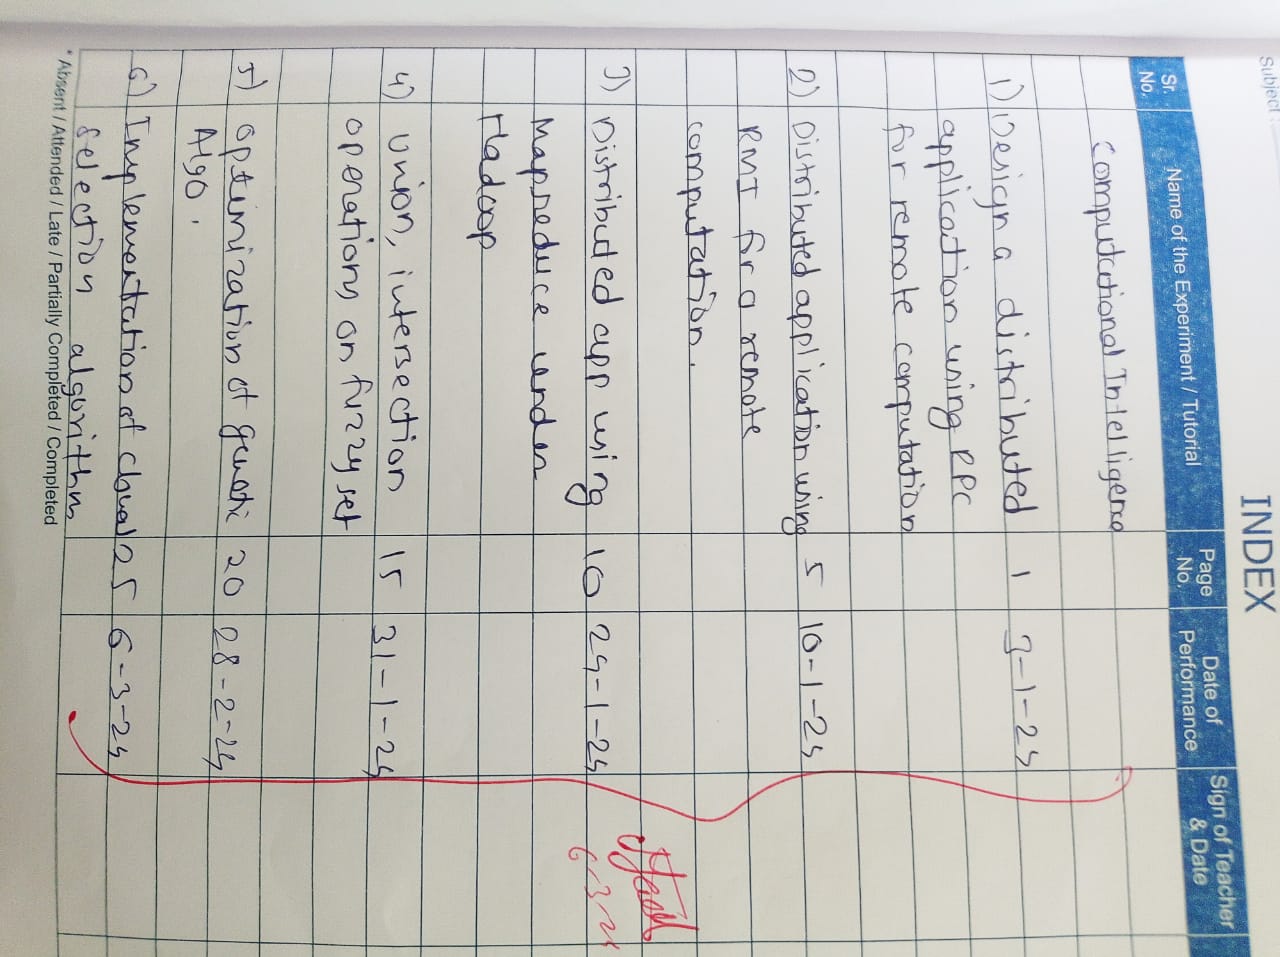 Subject :
INDEX
Sr. No. Name of the Experiment / Tutorial Page No. Date of Performance Sign of Teacher & Date
Computational Intelligence
1) Design a distributed 1 3-1-25
application using RPC
for remote computation
2) Distributed application using 5 10-1-25
RMI for a remote
computation.
3) Distributed app using 10 24-1-25
Mapreduce under
Hadoop
4) Union, intersection 15 31-1-25
operations on fuzzy set
5) Optimization of genetic 20 28-2-25
Algo.
6) Implementation of clonal 25 6-3-25
selection algorithm
6-3-25
* Absent / Attended / Late / Partially Completed / Completed